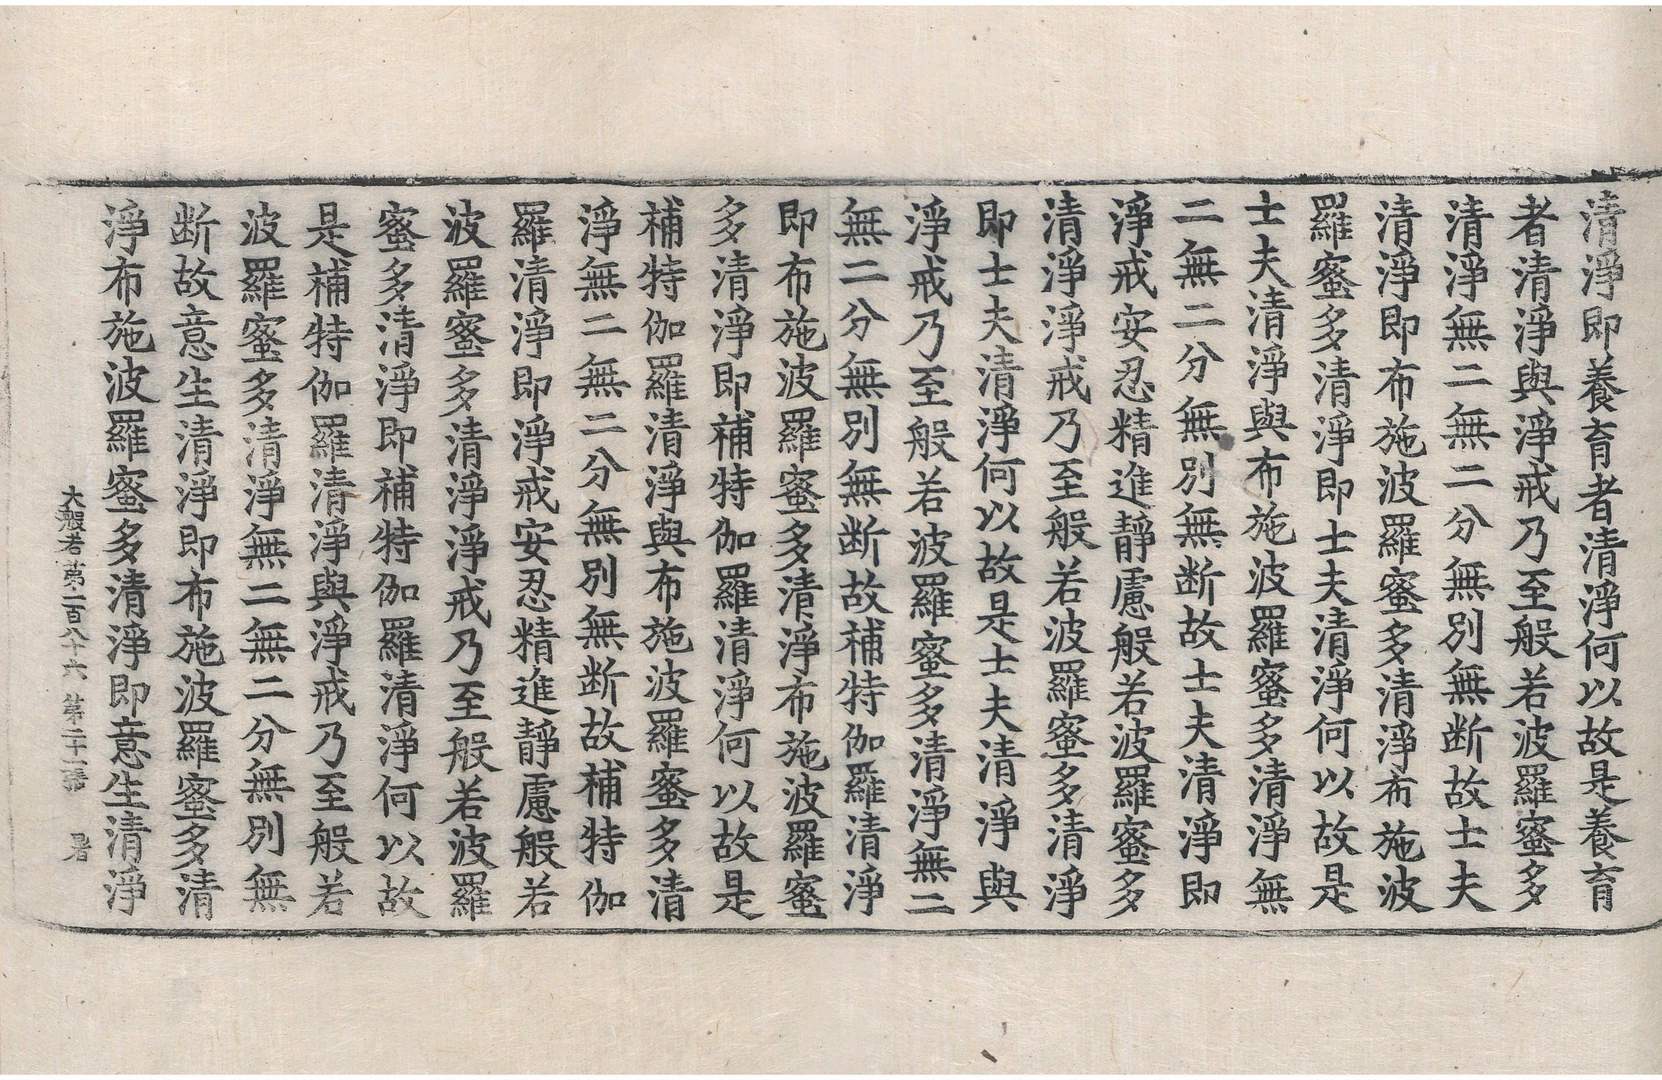 清淨即養育者清淨何以故是養育
者清淨與淨戒乃至般若波羅蜜多
清淨無二無二分無別無断故士夫
清淨即布施波羅蜜多清淨布施波
羅蜜多清淨即士夫清淨何以故是
士夫清淨與布施波羅蜜多清淨無
二無二分無別無断故士夫清淨即
淨戒安忍精進靜慮般若波羅蜜多
清淨淨戒乃至般若波羅蜜多清淨
即士夫清淨何以故是士夫清淨與
淨戒乃至般若波羅蜜多清淨無二
無二分無別無断故補特伽羅清淨
即布施波羅蜜多清淨布施波羅蜜
多清淨即補特伽羅清淨何以故是
補特伽羅清淨與布施波羅蜜多清
淨無二無二分無別無断故補特伽
羅清淨即淨戒安忍精進靜慮般若
波羅蜜多清淨淨戒乃至般若波羅
蜜多清淨即補特伽羅清淨何以故
是補特伽羅清淨與淨戒乃至般若
波羅蜜多清淨無二無二分無別無
断故意生清淨即布施波羅蜜多清
淨布施波羅蜜多清淨即意生清淨
大般若第二百八十六 第二十二張 暑